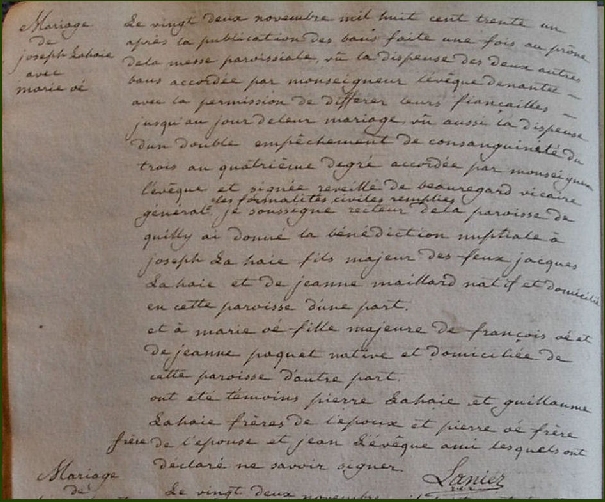 Mariage
de
joseph Lahaie
avec
marie oé
Le vingt deux novembre mil huit cent trente un
après la publication des bans faite une fois au prône
dela messe paroissiale, vû la dispense des deux autres
bans accordée par monseigneur l'évêque denante
avec la permission de différer leurs fiançailles
jusqu'au jour deleur mariage, vû aussi la dispense
d'un double empêchement de consanguinété du
trois au quâtrième degré accordée par monseigneur
l'évêque et signée reveillé de beauregard vicaire
les formalités civiles remplies
général je soussigné recteur dela paroisse de
quilly ai donné la bénédiction nuptiale à
joseph La haie fils majeur des feux jacques
La haie et de jeanne maillard natif et domicilié
en cette paroisse d'une part.
et à marie oé fille majeure de françois oé et
de jeanne paquet native et domiciliée de
cette paroisse d'autre part.
ont été témoins pierre Lahaie et guillaume
Lahaie frères de l'époux et pierre oé frère
frère de l'épouse et jean Lévêque ami lesquels ont
déclaré ne savoir signer.
Laniéz
Mariage
de
Le vingt deux novembre